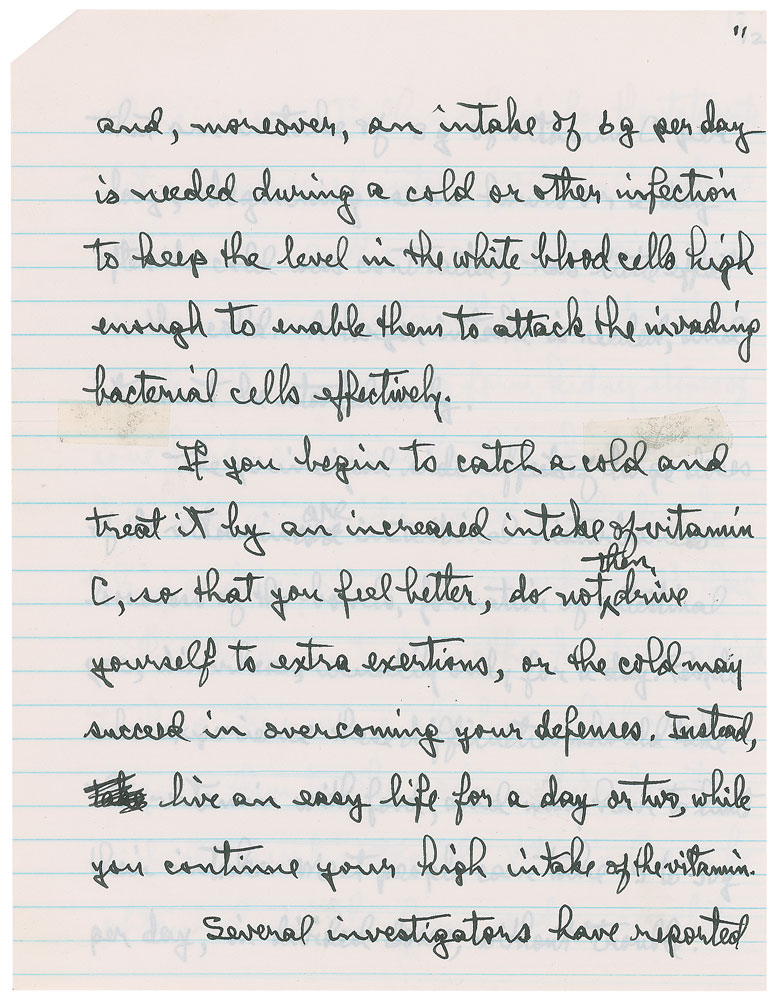 11
and, moreover, an intake of 6g per day
is needed during a cold or other infection
to keep the level in the white blood cells high
enough to enable them to attack the invading
bacterial cells effectively.
If you begin to catch a cold and
treat it by an increased intake of vitamin
then,
C, so that you feel better, do not drive
yourself to extra exertions, or the cold may
succeed in overcoming your defenses. Instead,
live an easy life for a day or two, while
you continue your high intake of the vitamin.
Several investigators have reported